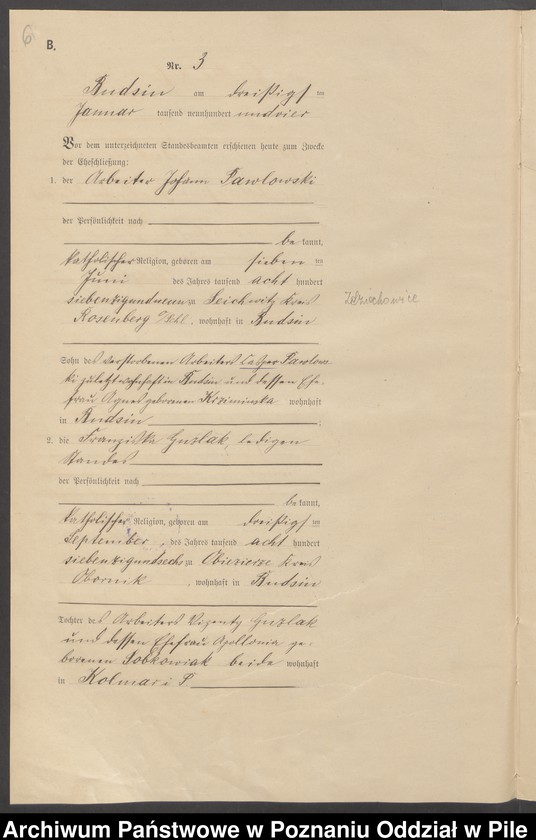 6
B.
Nr. 3
Budsin am dreißigsten
Januar tausend neunhundert undvier
Vor dem unterzeichneten Standesbeamten erschienen heute zum Zwecke
der Eheschließung:
1. der Arbeiter Johann Pawlowski
der Persönlichkeit nach
be kannt,
katholischer Religion, geboren am sieben ten
Juni des Jahres tausend acht hundert
siebenzigundneun zu Leichwitz Kreis
Rosenberg O/Schl., wohnhaft in Budsin
Zdziechowice
Sohn des verstorbenen Arbeiters Pawlows-
ki zuletzt wohnhaft in Budsin und dessen Ehe-
frau Agnes geborenen Kiziminska wohnhaft
in Budsin ;
2. die Franziska Guzlak, ledigen
Standes
der Persönlichkeit nach
be kannt,
katholischer Religion, geboren am dreißigsten
September, des Jahres tausend acht hundert
siebenzigundsechs zu Obiezierze Kreis
Obornik, wohnhaft in Budsin
Tochter des Arbeiters Vizentz Guzlak
und dessen Ehefrau Apollonia ge-
borenen Sobkowiak beide wohnhaft
in Kolmar i P
Archiwum Państwowe w Poznaniu Oddział w Pile